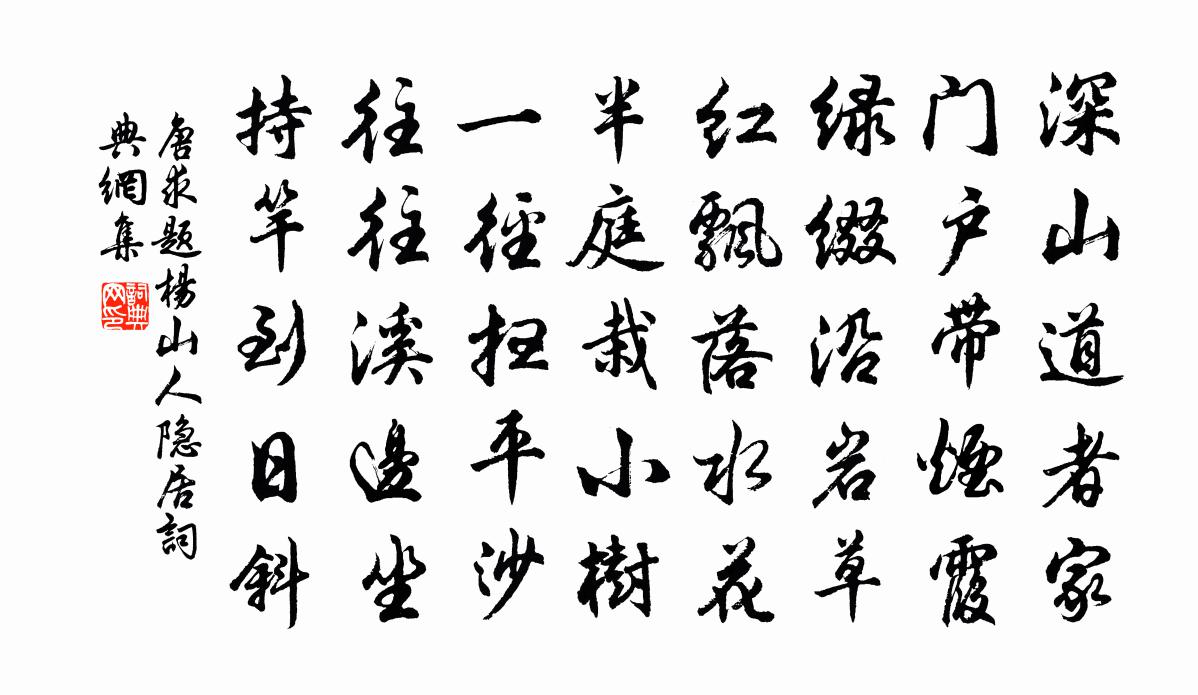 深山道者家
门户带煙霞
緑缀沿岩草
红飄落水花
半庭栽小樹
一徑扫平沙
往往溪邊坐
持竿到日斜
唐求题楊山人隐居詞
典網集
詞典
网印